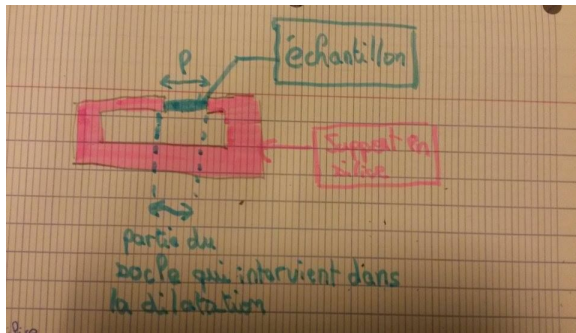 P
échantillon
Support en
silice
partie du
socle qui intervient dans
la dilatation